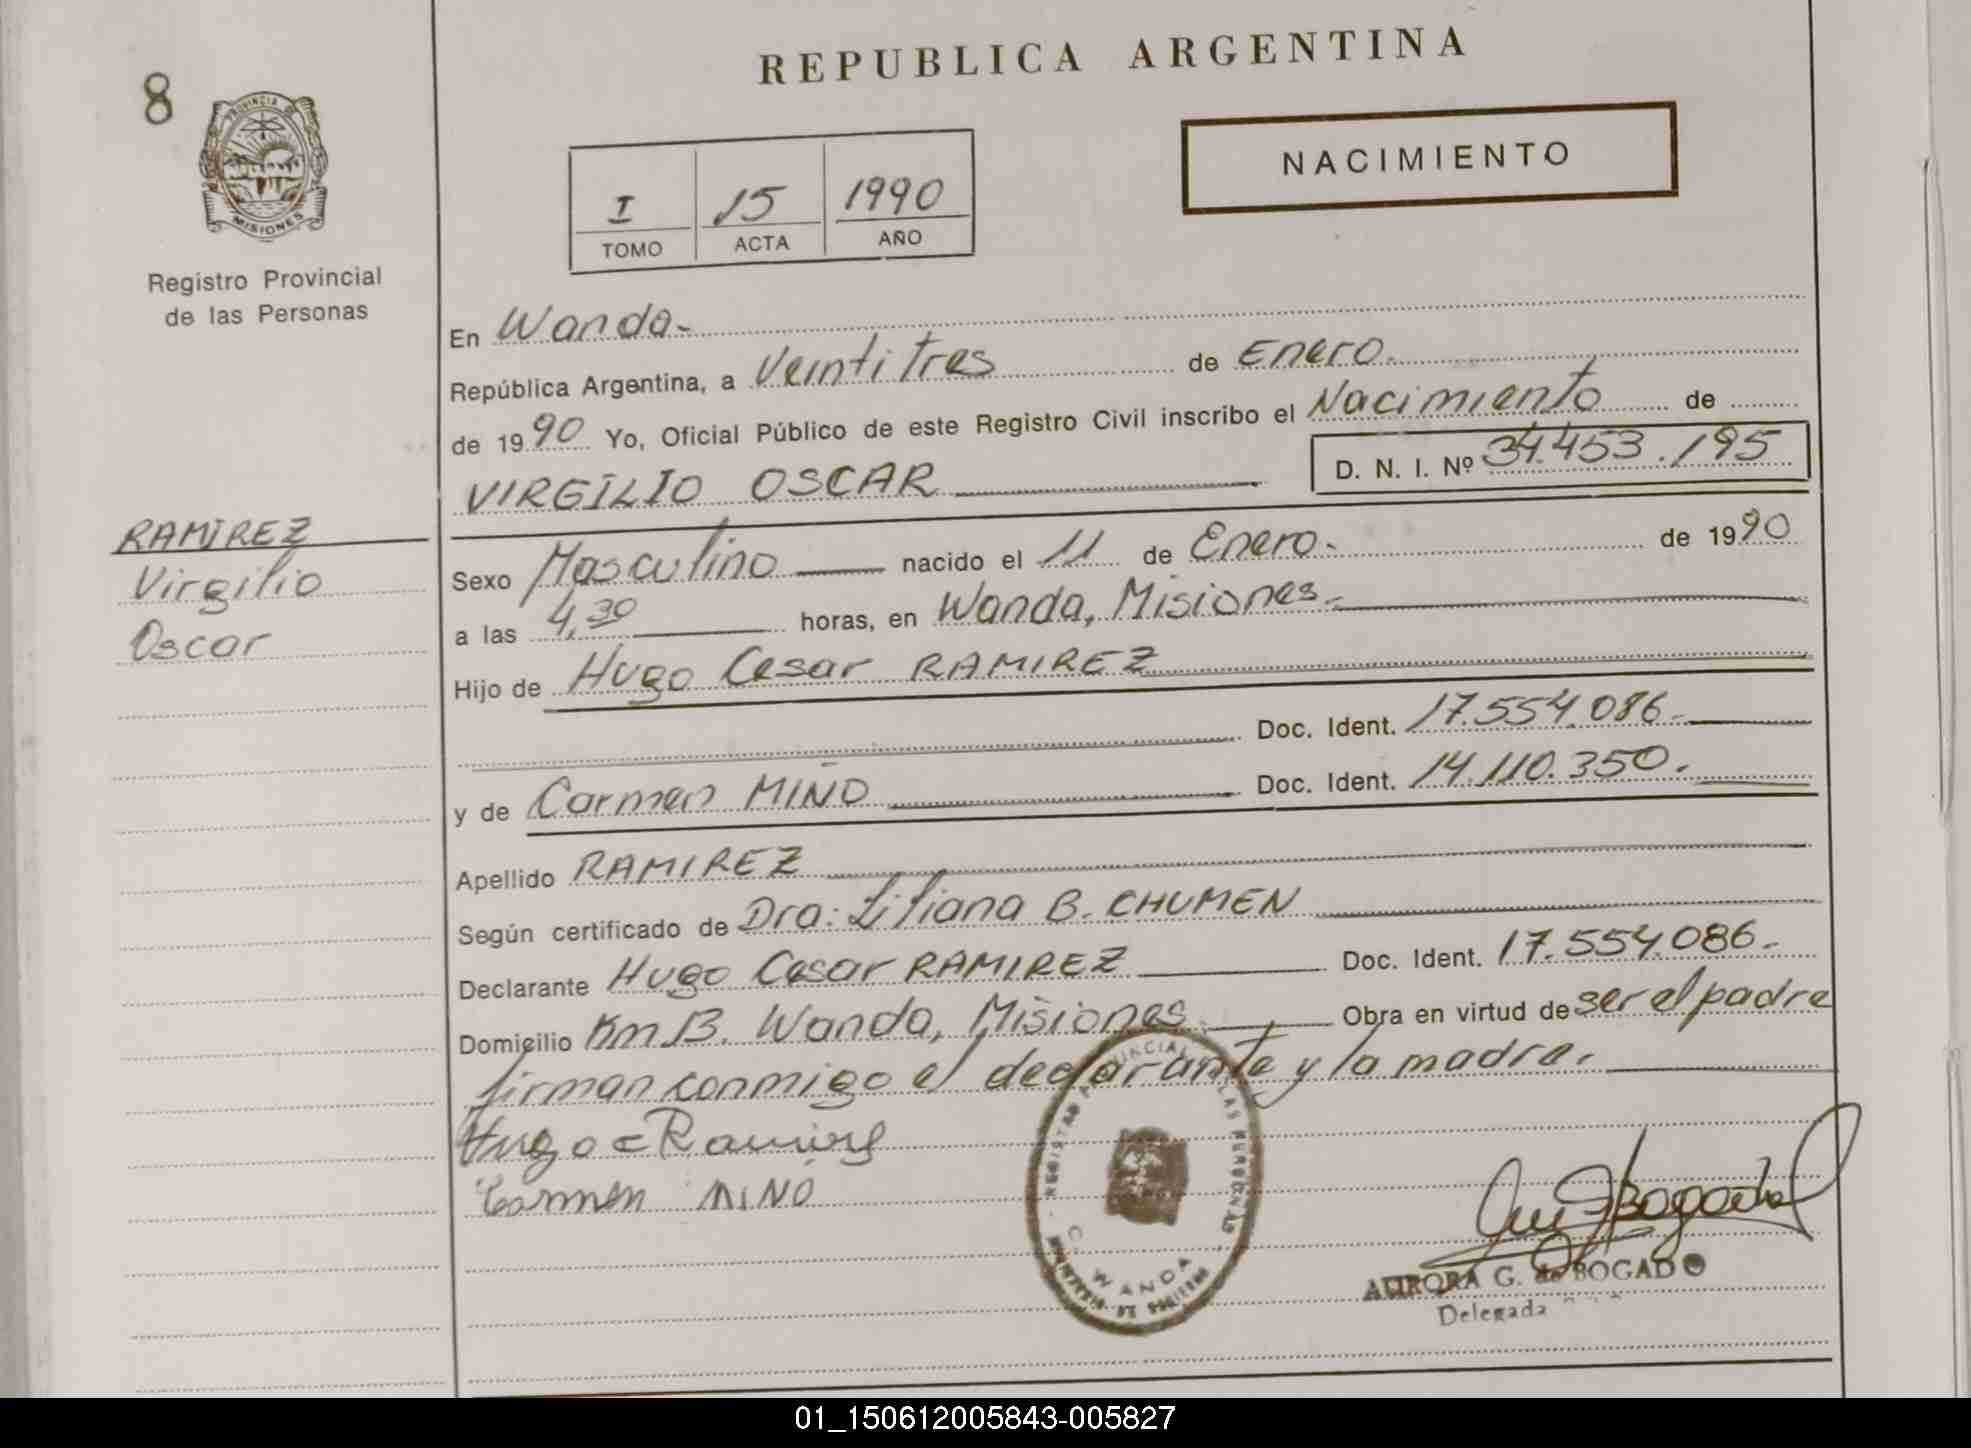 REPUBLICA ARGENTINA
8
PROVINCIA DE
MISIONES
NACIMIENTO
I 15 1990
TOMO ACTA AÑO
Registro Provincial
de las Personas
En Wanda.-
República Argentina, a Veintitres de Enero.
de 1990 Yo, Oficial Público de este Registro Civil inscribo el Nacimiento de
VIRGILIO OSCAR D. N. I. Nº 34.453.195
RAMIREZ
Virgilio
Oscar
Sexo Masculino nacido el 11 de Enero.- de 1990
a las 4,30 horas, en Wanda, Misiones.-
Hijo de Hugo Cesar RAMIREZ
Doc. Ident. 17.554.086.-
y de Carmen MIÑO Doc. Ident. 14.110.350.-
Apellido RAMIREZ
Según certificado de Dra: Liliana B. CHUMEN
Declarante Hugo Cesar RAMIREZ Doc. Ident. 17.554.086.-
Domicilio Km 13. Wanda, Misiones. Obra en virtud de ser el padre
firman conmigo el declarante y la madre.
Hugo C Ramirez
Carmen MIÑO
WANDA
AURORA G. de BOGADO
Delegada
01_150612005843-005827